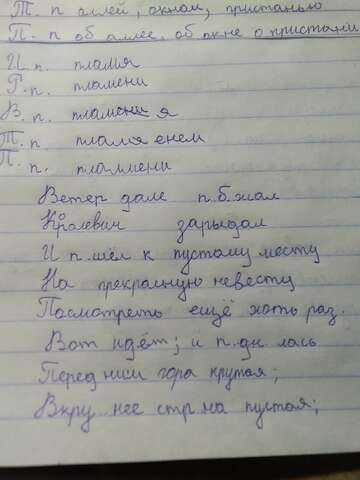 Т. п аллей, окном, пристанью
П. п об аллее, об окне о пристани
И п. пламя
Р. п. пламени
В. п. пламени я
Т. п. пламя енем
П. п. пламмени
Ветер дале п.б.жал
Королевич зарыдал
И п.шёл к пустому месту
На прекрасную невесту
Посмотреть ещё хоть раз.
Вот идёт; и п.дн. лась
Перед ним гора крутая;
Вкру.. нее стр.на пустая;